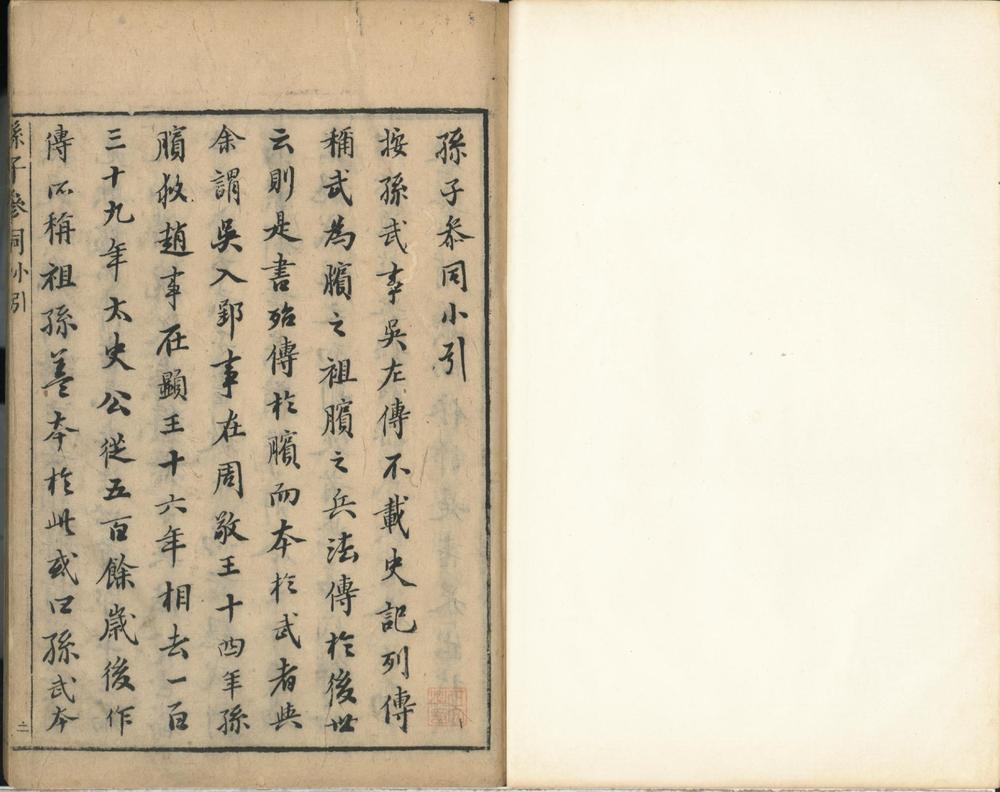 孫子叅同小引
按孫武事吳左傳不載史記列傳
稱武為臏之祖臏之兵法傳於後世
云則是書殆傳於臏而本於武者與
余謂吳入郢事在周敬王十四年孫
臏救趙事在顯王十六年相去一百
三十九年太史公從五百餘歲後作
傳所稱祖孫蓋本於此或曰孫武本
孫子參同小引